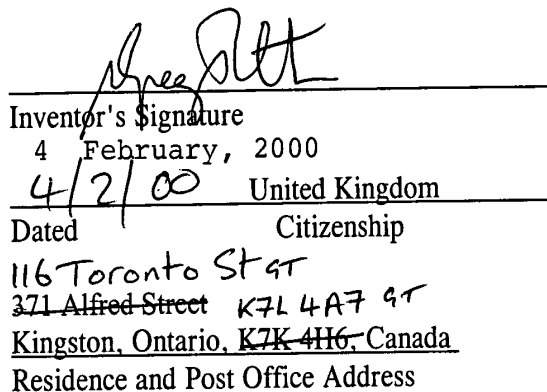 Inventor's Signature
4 February, 2000
4/2/00 United Kingdom
Dated Citizenship
116 Toronto St GT
371 Alfred Street K7L 4A7 GT
Kingston, Ontario, K7K 4H6, Canada
Residence and Post Office Address